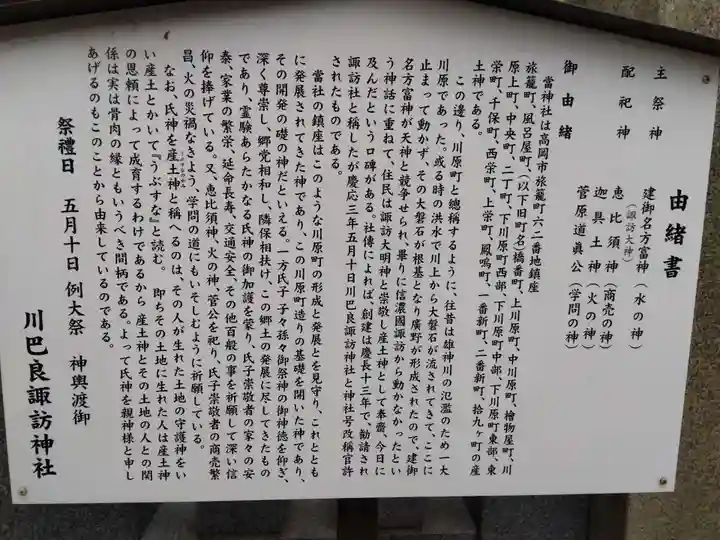 由緒書
主祭神　建御名方富神（水の神）
（諏訪大神）
配祀神　恵比須神（商売の神）
迦具土神（火の神）
菅原道真公（学問の神）
御由緒
當神社は高岡市旅籠町六二番地鎮座
旅籠町、風呂屋町、（以下旧町名）橋番町、上川原町、中川原町、檜物屋町、川
原上町、中央町、二丁町、下川原町西部、下川原町中部、下川原町東部、東
栄町、千保町、西栄町、上栄町、鳳鳴町、一番新町、二番新町、拾九ヶ町の産
土神である。
この辺り、川原町と總稱するように、往昔は雄神川の氾濫のため一大
川原であった。或る時の洪水で川上から大磐石が流されてきて、ここに
止まって動かず、その大磐石が根基となり廣野が形成されたので、建御
名方富神が天神と競争せられ、畢りに信濃國諏訪から動かなかったとい
う神話に重ねて、住民は諏訪大明神と崇敬し産土神として奉齋、今日に
及んだという口碑がある。社傳によれば、創建は慶長十三年で、勧請され
諏訪社と稱したが慶応三年五月十日川巴良諏訪神社と神社号改稱官許
されたものである。
當社の鎮座はこのような川原町の形成と発展とを見守り、これととも
に発展されてきた神であり、この川原町造りの基礎を開いた神であり、
その開発の礎の神だといえる。一方氏子 子々孫々御祭神の御神徳を仰ぎ、
深く尊崇し、郷党相和し、隣保相扶け、この郷土の発展に尽してきたもの
であり、霊験あらたかなる氏神の御加護を蒙り、氏子崇敬者の家々の安
泰、家業の繁栄、延命長寿、交通安全、その他百般の事を祈願して深い信
仰を捧げている。又、恵比須神、火の神、菅公を祀り、氏子崇敬者の商売繁
昌、火の災禍なきよう、学問の道にもいそしむように祈願している。
なお、氏神を産土神と稱へるのは、その人が生れた土地の守護神をい
い産土とかいて『うぶすな』と読む。 即ちその土地に生れた人は産土神
の恩頼によって成育するわけであるから 産土神とその土地の人との関
係は実は骨肉の縁ともいうべき間柄である。よって氏神を親神様と申し
あげるのもこのことから由来しているのである。
祭禮日　五月十日 例大祭　神輿渡御
川巴良諏訪神社